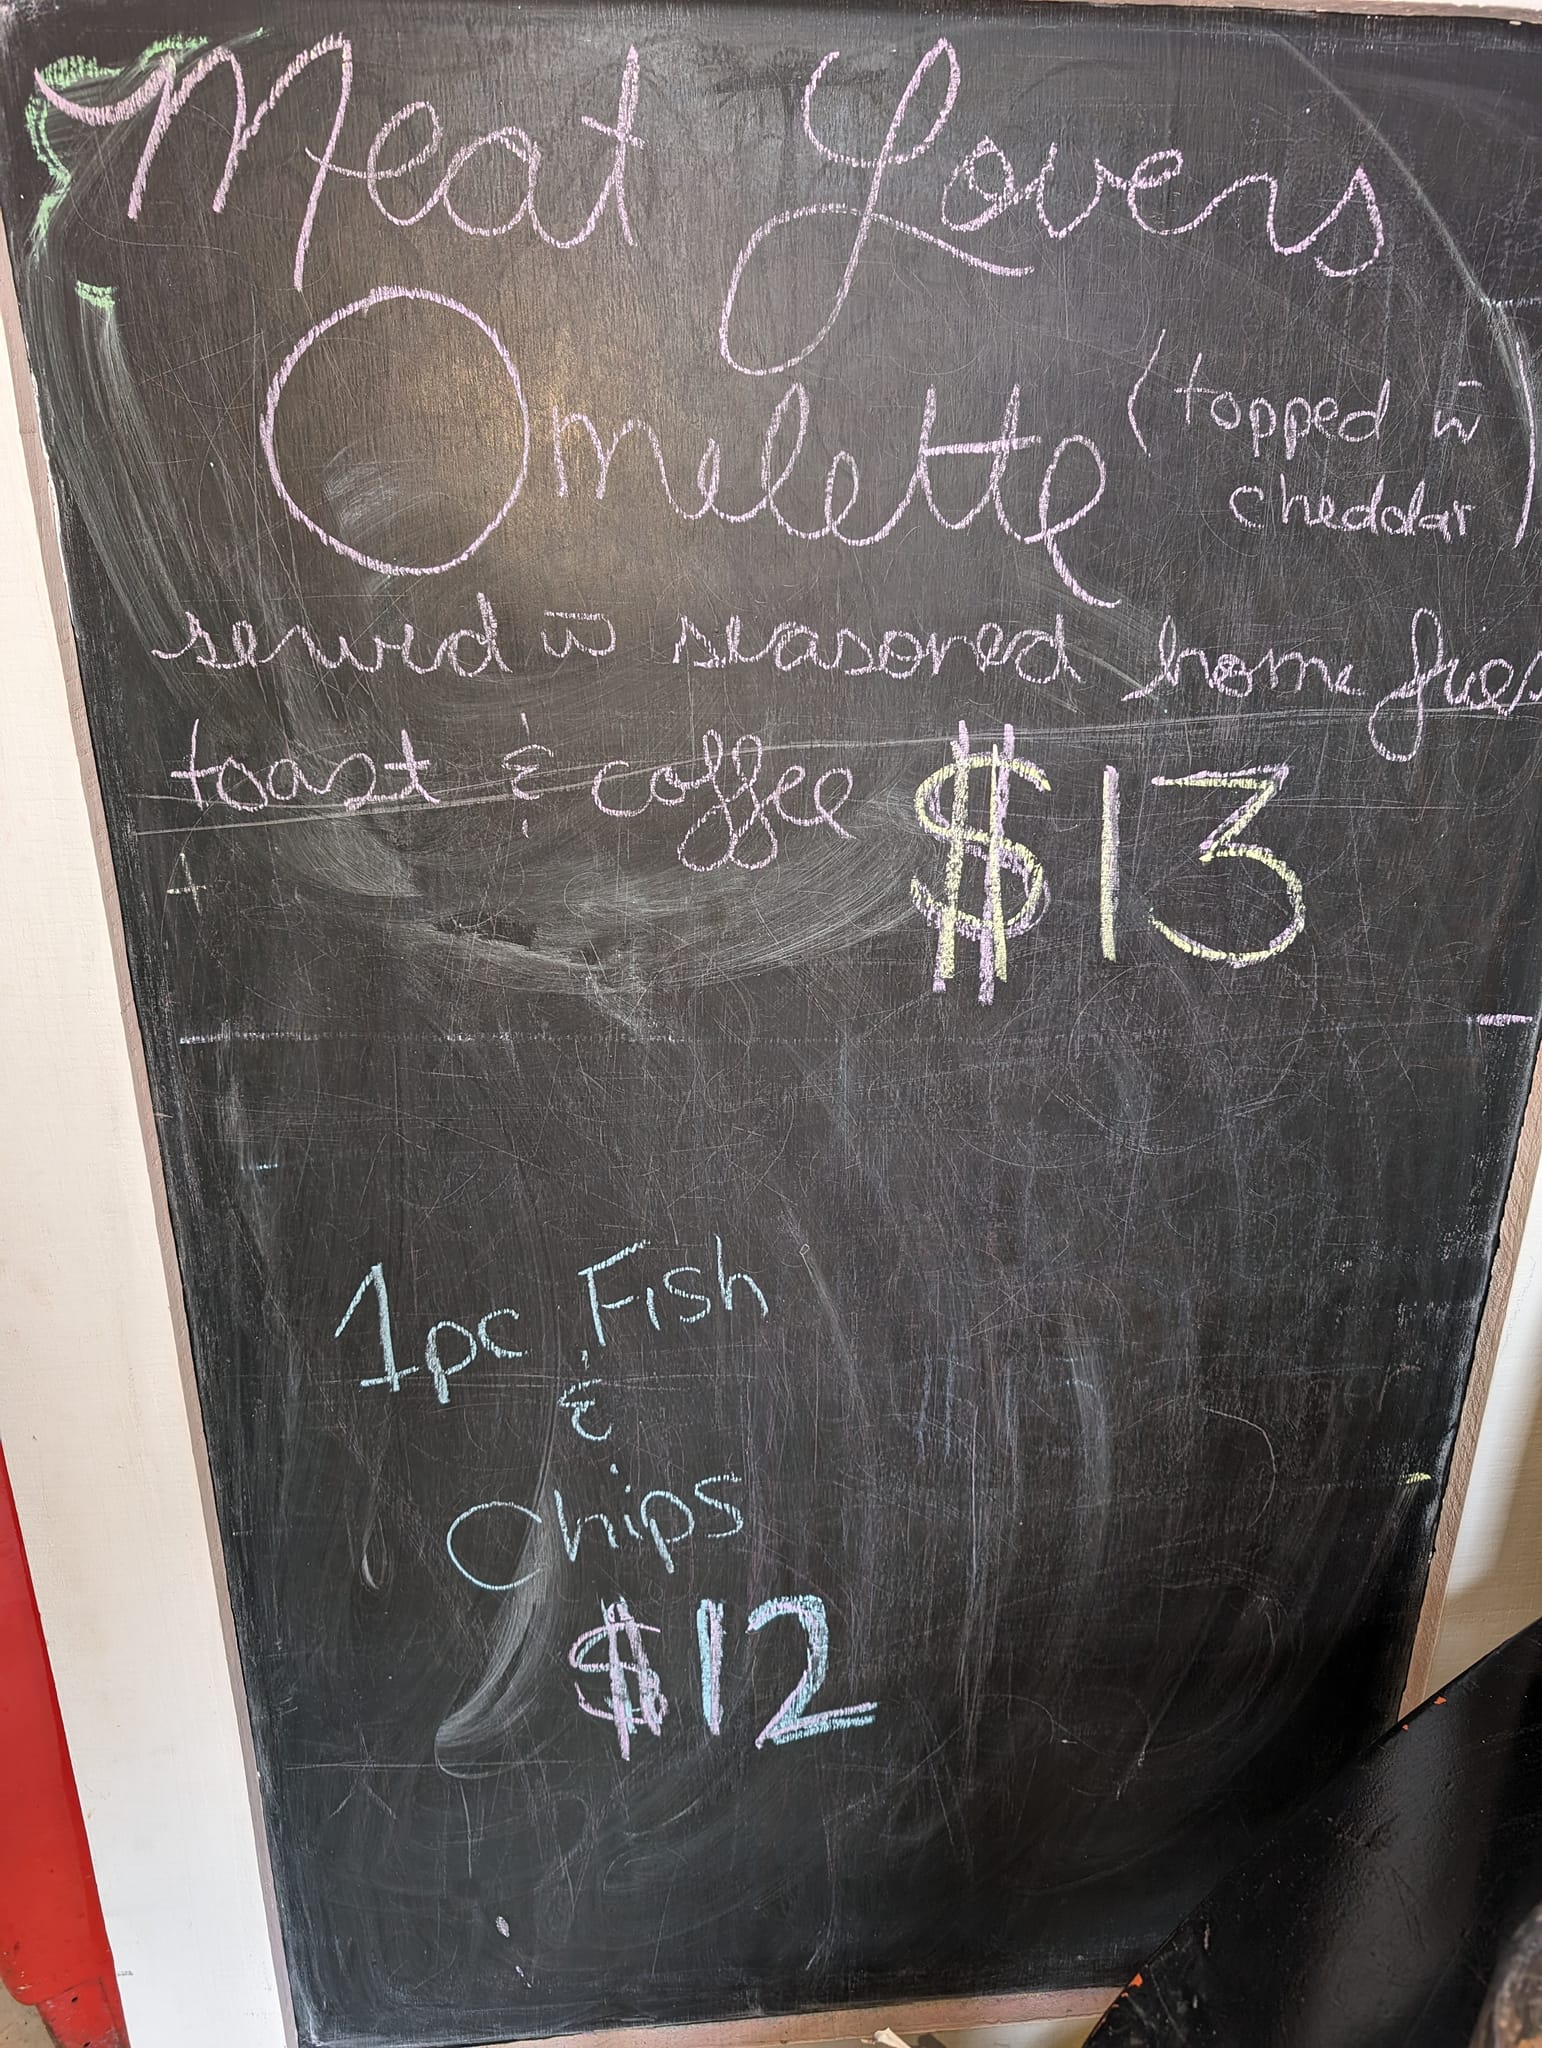 Meat Lovers
Omelette (topped w̄
cheddar)
served w̄ seasoned home fries
toast & coffee $13
1pc Fish
&
Chips
$12